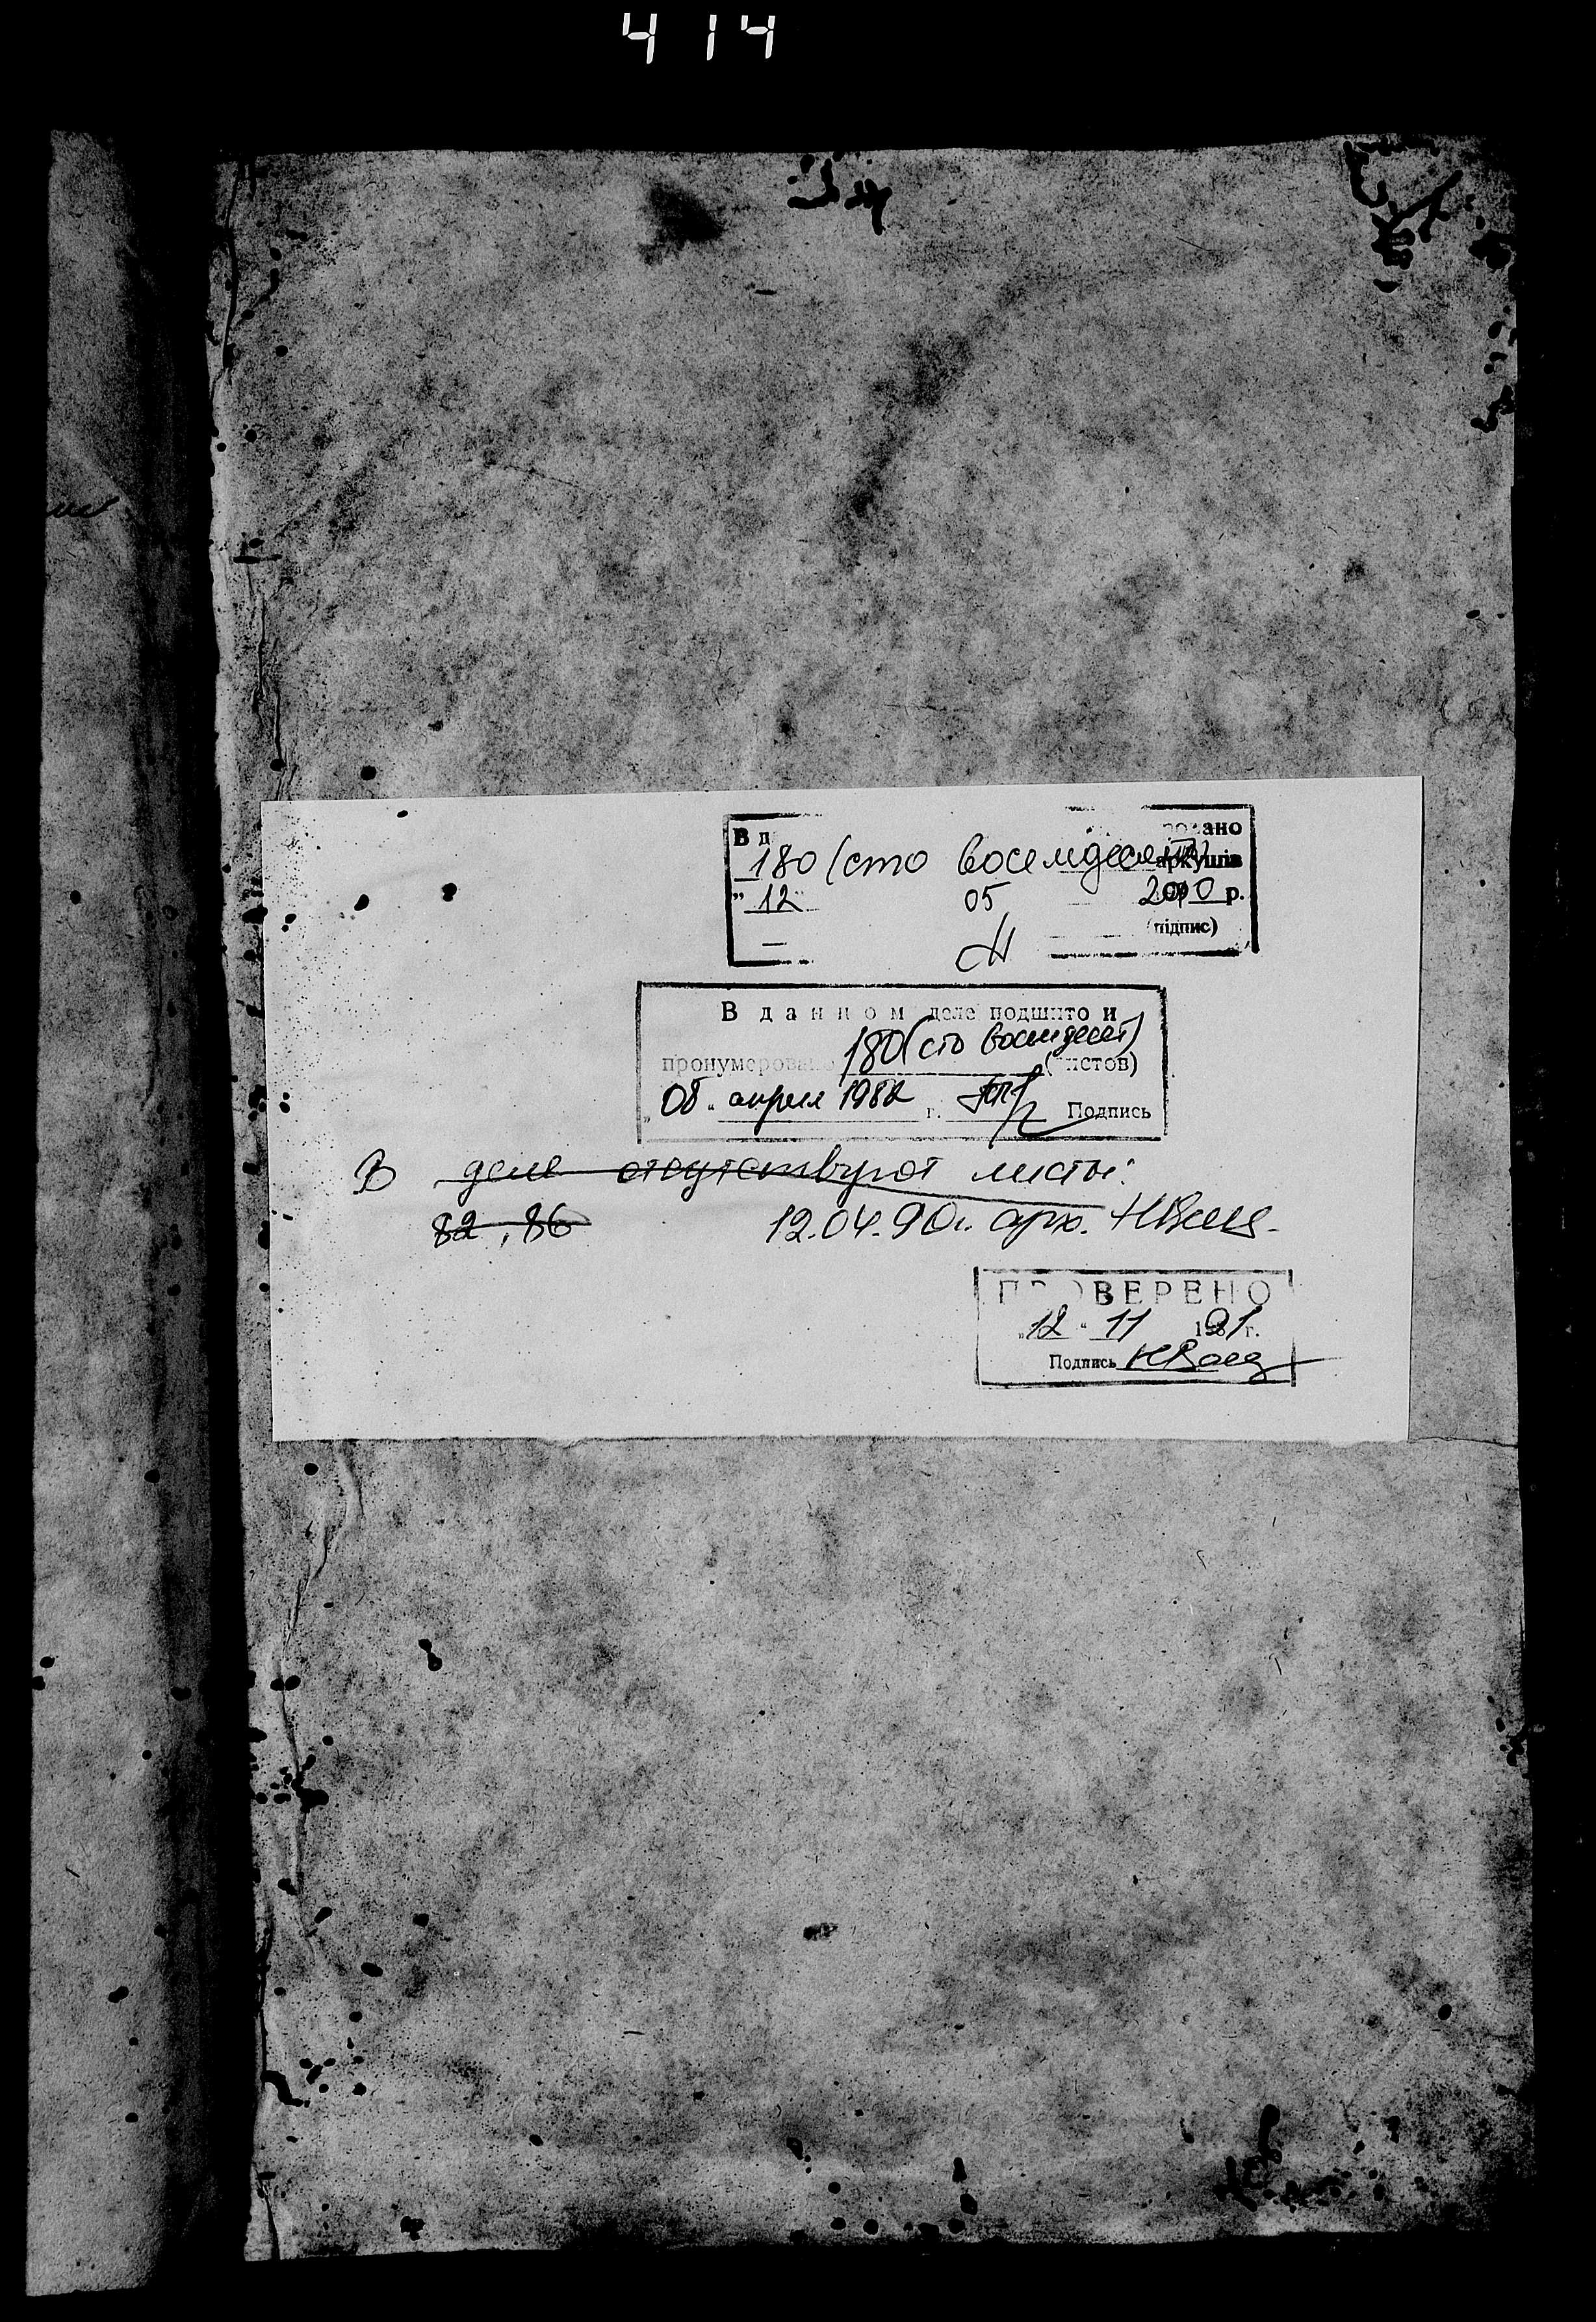 4 14
В д ано
180 (сто восемдесят) аркушів
" 12 " 05 2010 р.
(підпис)
В данном деле подшито и
180 (сто восемдесят)
пронумеровано (листов)
„ 08 “ апреля 1982 г. Подпись
В деле отсутствуют листы:
82, 86 12.04.90г. арх.
ПРОВЕРЕНО
„ 12 “ 11 1991 г.
Подпись